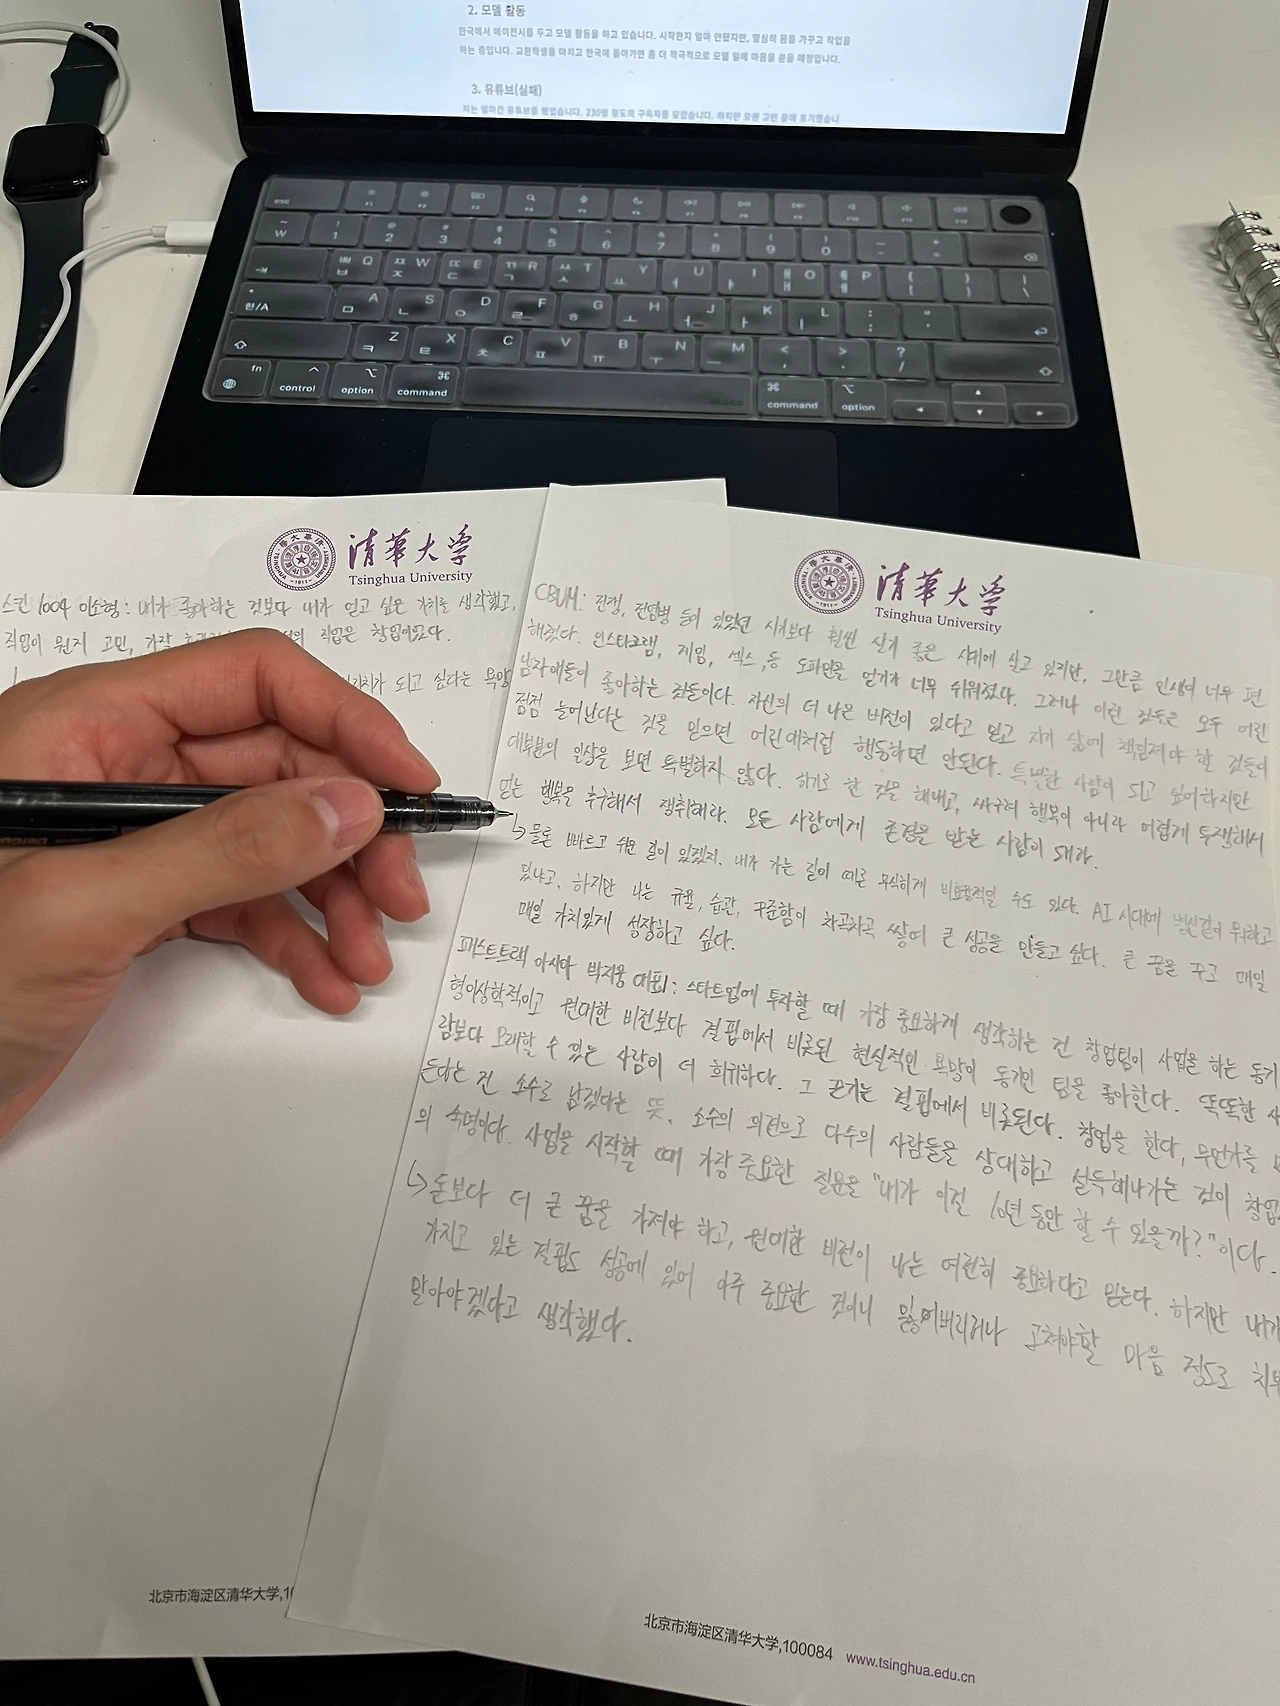 2. 모델 활동
한국에서 에이전시를 두고 모델 활동을 하고 있습니다. 시작한지 얼마 안됐지만, 열심히 몸을 가꾸고 작업을
하는 중입니다. 교환학생을 마치고 한국에 돌아가면 좀 더 적극적으로 모델 일에 마음을 쏟을 예정입니다.
3. 유튜브(실패)
저는 얼마간 유튜브를 했었습니다. 230명 정도의 구독자를 모았습니다. 하지만 오랜 고민 끝에 포기했습니
esc F1 F2 F3 F4 F5 F6 F7 F8 F9 F10 F11 F12
~ ₩ ! 1 @ 2 # 3 $ 4 % 5 ^ 6 & 7 * 8 ( 9 ) 0 _ - + =
ㅃ ㅂ Q ㅉ ㅈ W ㄸ ㄷ E ㄲ ㄱ R ㅆ ㅅ T ㅛ Y ㅕ U ㅑ I ㅒ ㅐ O ㅖ ㅔ P { [ } ] | \
한/A ㅁ A ㄴ S ㅇ D ㄹ F ㅎ G ㅗ H ㅓ J ㅏ K ㅣ L : ; " '
ㅋ Z ㅌ X ㅊ C ㅍ V ㅠ B ㅜ N ㅡ M < , > . ? /
fn control option command command option
清華大学
Tsinghua University
스킨 1004 이소형: 내가 좋아하는 것보다 내가 얻고 싶은 가치를 생각했고,
직업이 뭔지 고민, 가장 직업은 창업이었다.
가치가 되고 싶다는 욕망
北京市海淀区清华大学,10
清華大学
Tsinghua University
CBUM: 전쟁, 전염병 등이 있었던 시기보다 훨씬 살기 좋은 시대에 살고 있지만, 그만큼 인생이 너무 편
해졌다. 인스타그램, 게임, 섹스, 등 도파민을 얻기가 너무 쉬워졌다. 그러나 이런 것들은 모두 어린
남자애들이 좋아하는 것들이다. 자신의 더 나은 버전이 있다고 믿고 자기 삶에 책임져야 할 것들이
점점 늘어난다는 것을 믿으면 어린애처럼 행동하면 안된다. 특별한 사람이 되고 싶어하지만
대부분의 일상을 보면 특별하지 않다. 하기로 한 것을 해내고, 싸구려 행복이 아니라 어렵게 투쟁해서
얻는 행복을 추구해서 쟁취해라. 모든 사람에게 존경을 받는 사람이 돼라.
↳ 물론 빠르고 쉬운 길이 있겠지. 내가 가는 길이 때론 무식하게 비효율적일 수도 있다. AI 시대에 병신같이 뭐하고
있냐고. 하지만 나는 규율, 습관, 꾸준함이 차곡차곡 쌓여 큰 성공을 만들고 싶다. 큰 꿈을 꾸고 매일
매일 가치있게 성장하고 싶다.
패스트트랙 아시아 박지웅 대표: 스타트업에 투자할 때 가장 중요하게 생각하는 건 창업팀이 사업을 하는 동기
형이상학적이고 원대한 비전보다 결핍에서 비롯된 현실적인 욕망이 동기인 팀을 좋아한다. 똑똑한 사
람보다 오래할 수 있는 사람이 더 희귀하다. 그 끈기는 결핍에서 비롯된다. 창업을 한다, 무언가를 만
든다는 건 소수로 남겠다는 뜻. 소수의 의견으로 다수의 사람들을 상대하고 설득해나가는 것이 창업
의 숙명이다. 사업을 시작할 때 가장 중요한 질문을 "내가 이걸 10년 동안 할 수 있을까?"이다.
↳ 돈보다 더 큰 꿈을 가져야 하고, 원대한 비전이 나는 여전히 중요하다고 믿는다. 하지만 내가
가지고 있는 결핍도 성공에 있어 아주 중요한 것이니 잃어버리거나 고쳐야할 마음 정도로 치부
말아야겠다고 생각했다.
北京市海淀区清华大学,100084 www.tsinghua.edu.cn